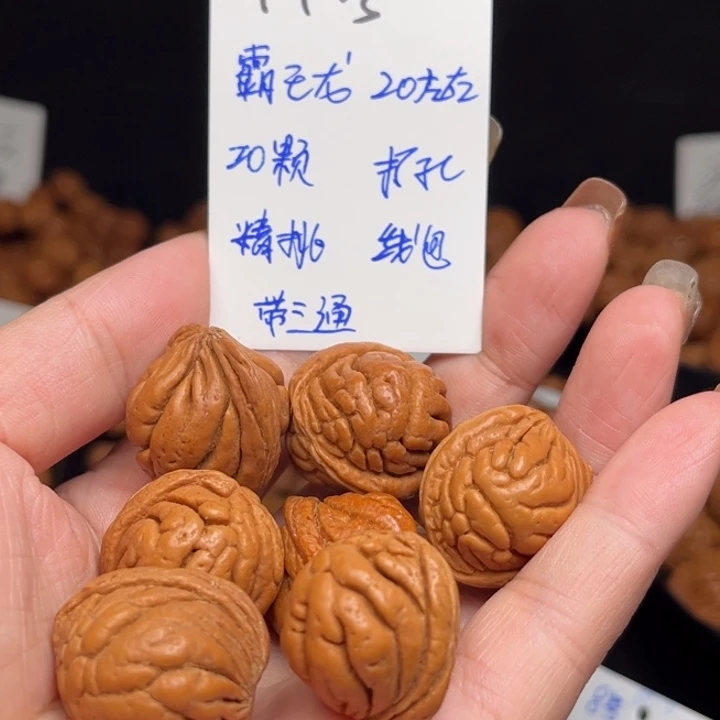 霸王龙 20左右
20颗 打孔
精挑 线包
带三通